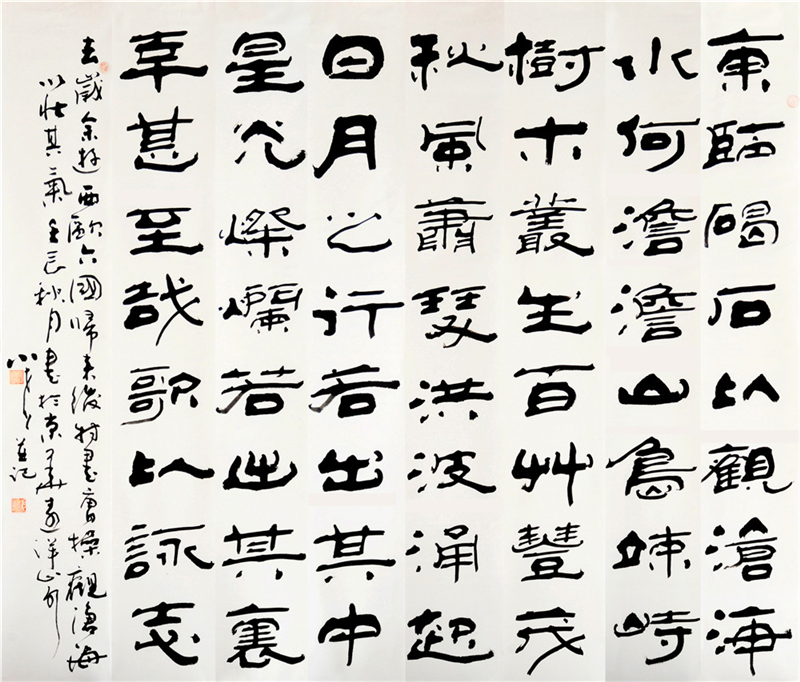 東臨碣石以觀滄海
水何澹澹山島竦峙
樹木叢生百艸豐茂
秋風蕭瑟洪波涌起
日月之行若出其中
星光燦爛若出其裏
幸甚至哉歌以詠志
去歲余遊西歐六國歸來後特書曹操觀滄海
以壯其氣壬辰秋月書於京華遠洋
並記